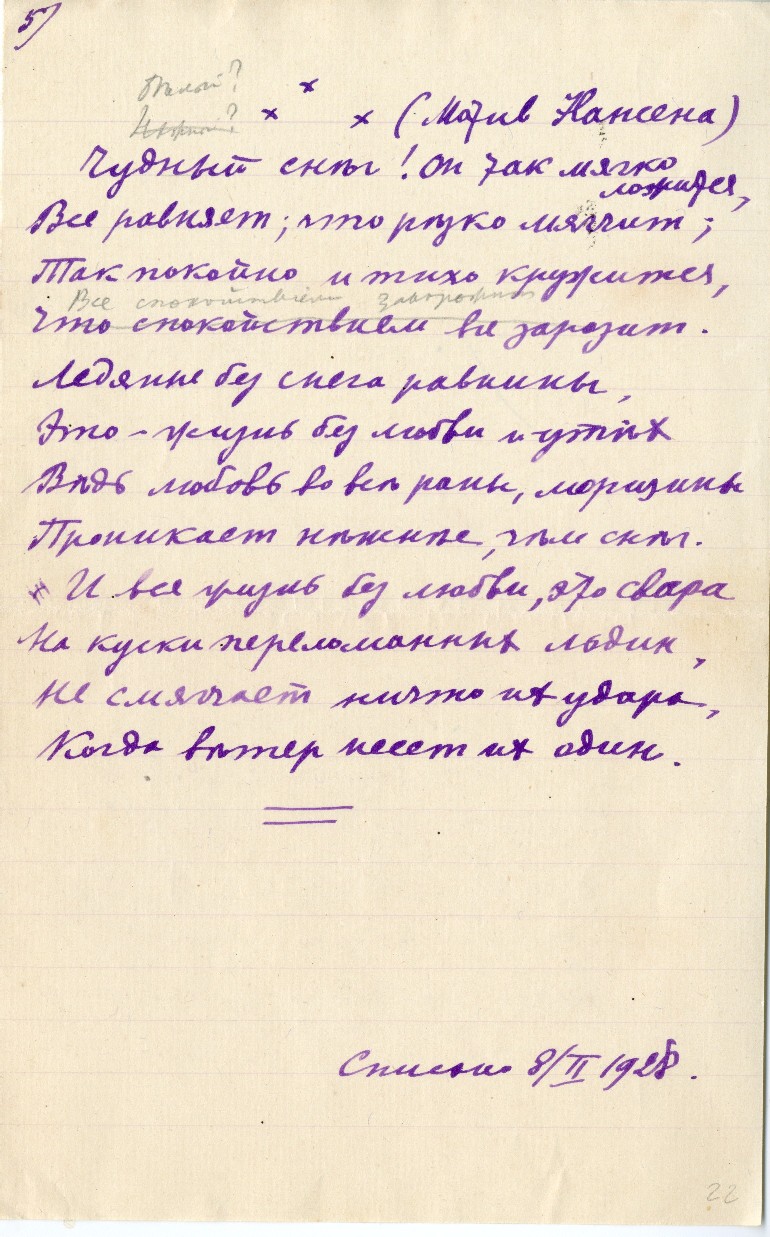 5)
Бѣлый?
х х х (Мотив Нансена)
Чудный снѣг! Он так мягко
ложится,
Все равняет; что рѣзко мягчит;
Так покойно и тихо кружится,
Все спокойствием
Что спокойствием все заразит.
Ледяные без снега равнины,
Это – жизнь без любви и утѣх
Вѣдь любовь во всѣ раны, морщины
Проникает нѣжнѣе, чѣм снѣг.
И вся жизнь без любви, это свара
На куски переломанных льдин,
Не смягчает ничто их удара,
Когда вѣтер несет их один.
Списано 8/II 1928.
22